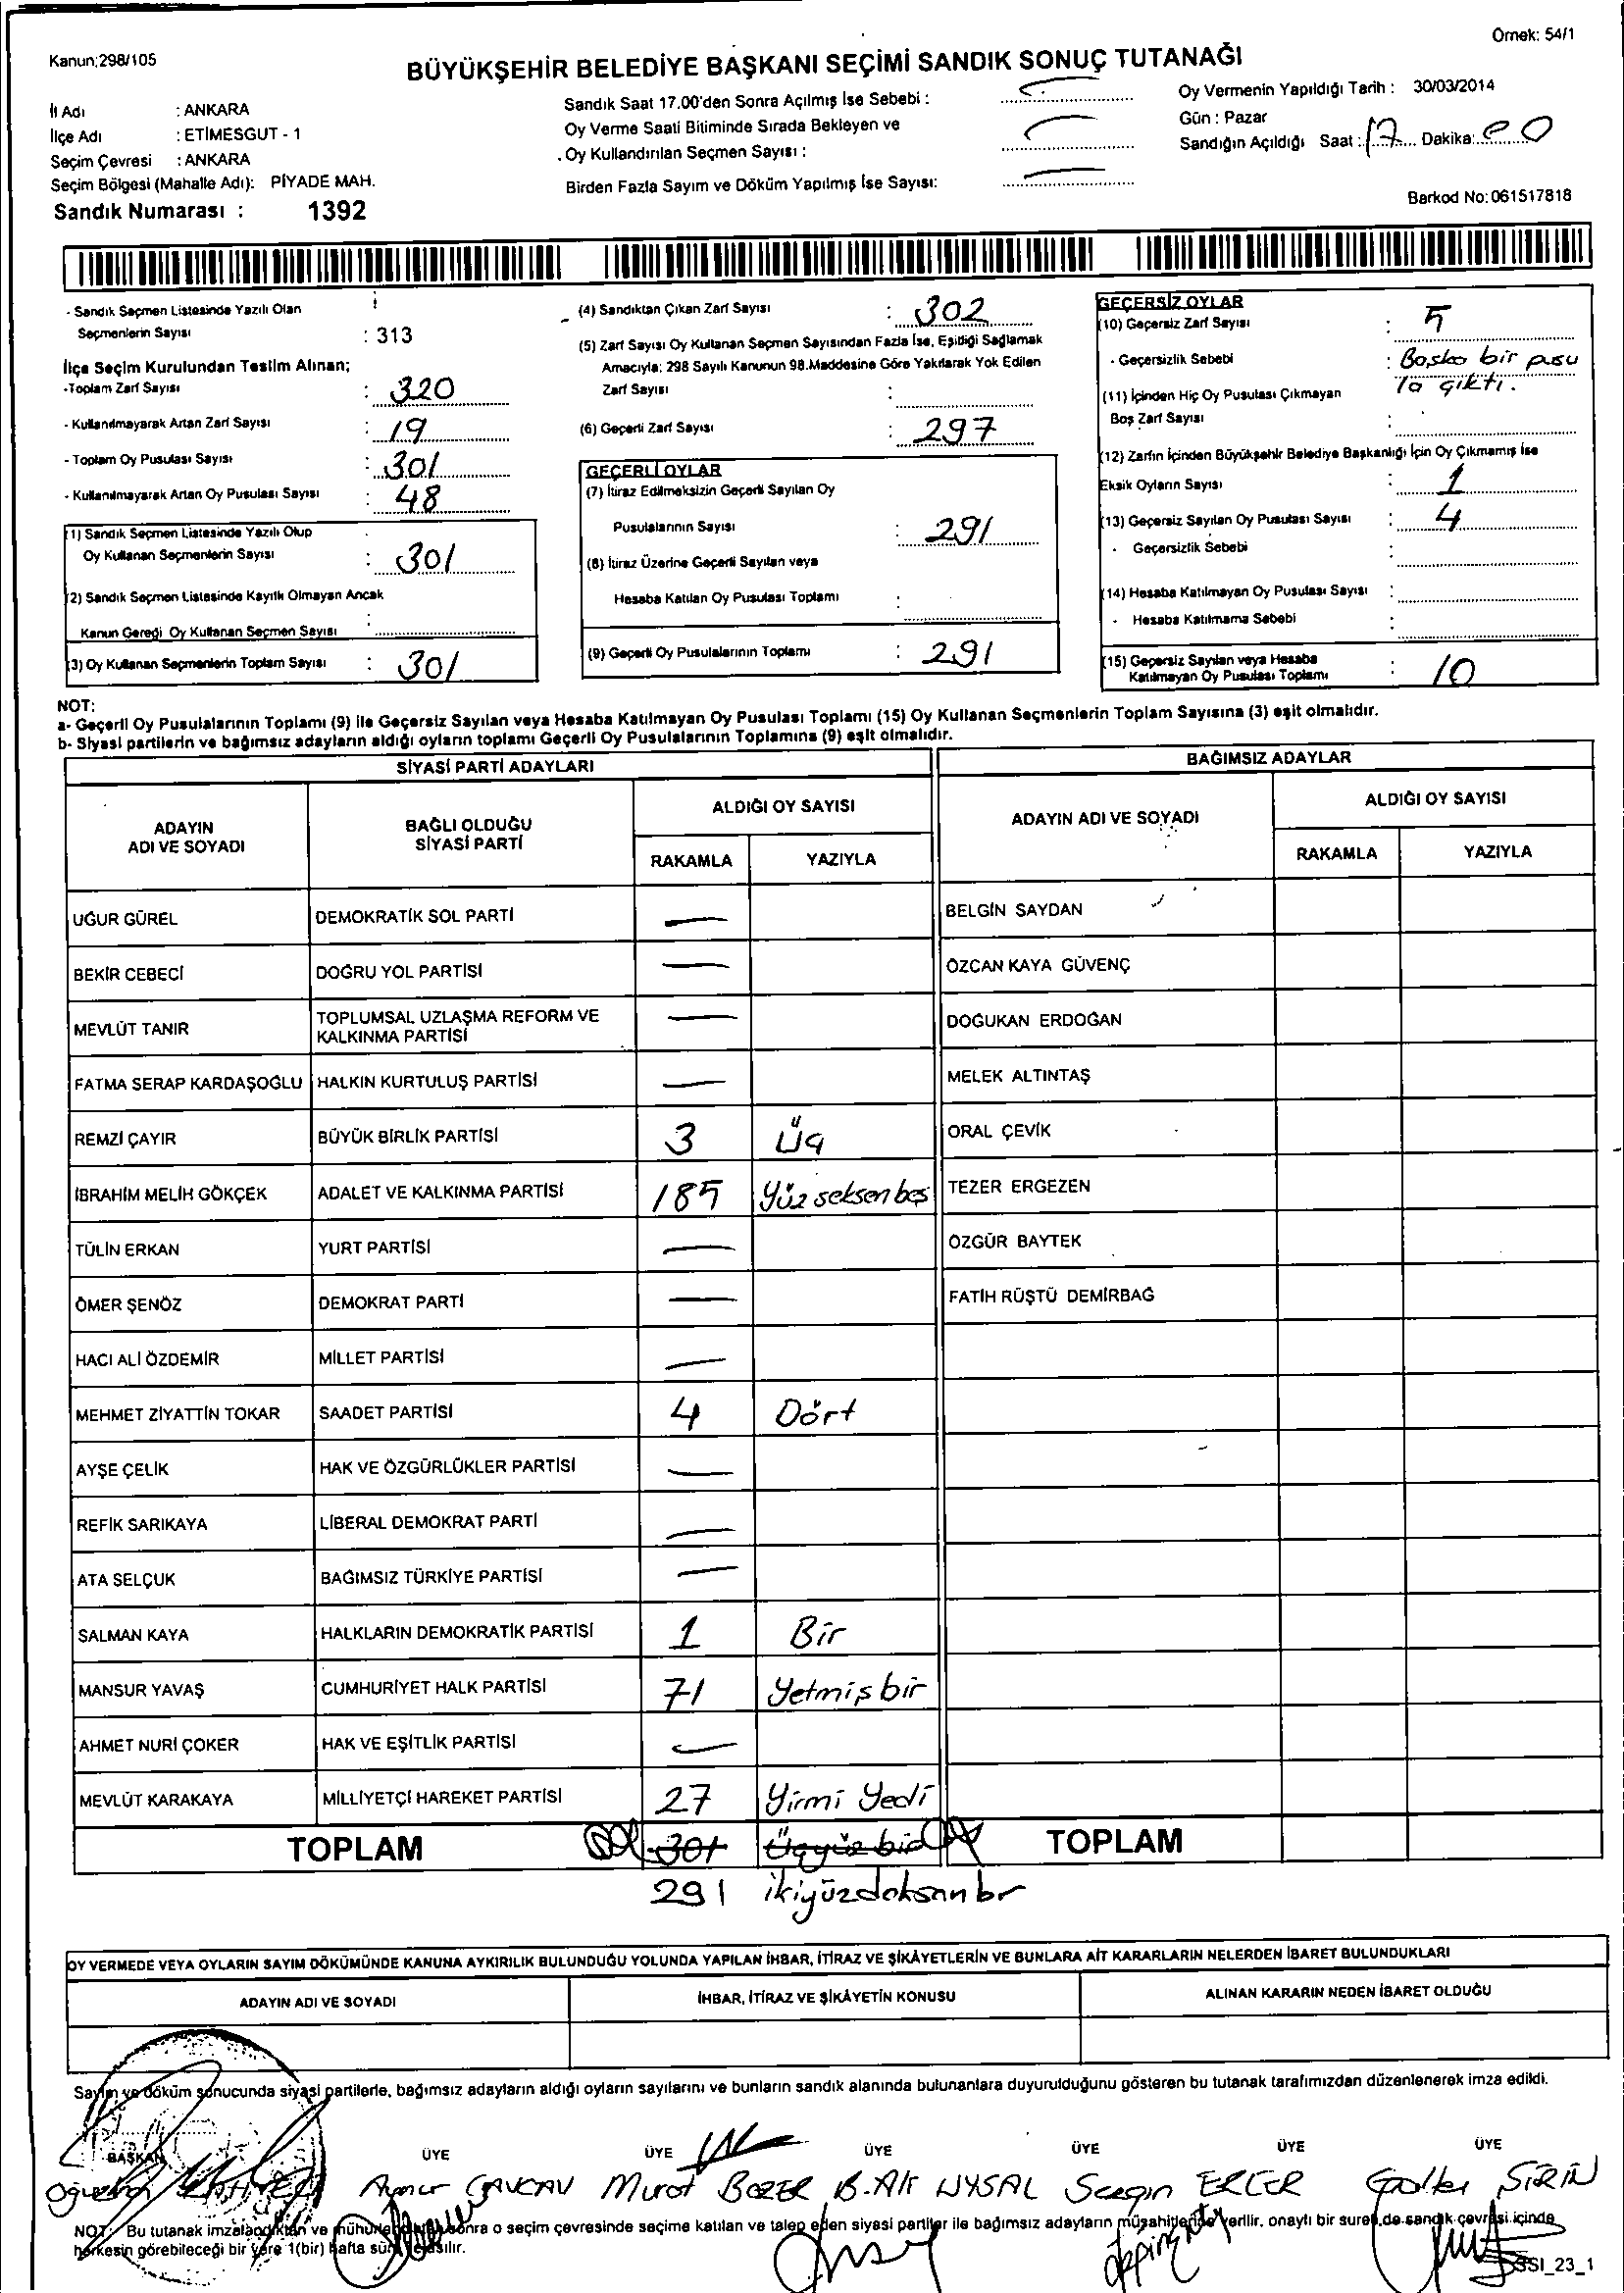 Örnek: 54/1
Kanun;298/105
BÜYÜKŞEHİR BELEDİYE BAŞKANI SEÇİMİ SANDIK SONUÇ TUTANAĞI
İl Adı : ANKARA
İlçe Adı : ETİMESGUT - 1
Seçim Çevresi : ANKARA
Seçim Bölgesi (Mahalle Adı): PİYADE MAH.
Sandık Numarası : 1392
Sandık Saat 17.00'den Sonra Açılmış İse Sebebi :
Oy Verme Saati Bitiminde Sırada Bekleyen ve
Oy Kullandırılan Seçmen Sayısı :
Birden Fazla Sayım ve Döküm Yapılmış İse Sayısı:
Oy Vermenin Yapıldığı Tarih : 30/03/2014
Gün : Pazar
Sandığın Açıldığı Saat : 17 Dakika:
Barkod No:061517818
- Sandık Seçmen Listesinde Yazılı Olan
Seçmenlerin Sayısı : 313
İlçe Seçim Kurulundan Teslim Alınan;
-Toplam Zarf Sayısı : 320
- Kullanılmayarak Artan Zarf Sayısı : 19
- Toplam Oy Pusulası Sayısı : 301
- Kullanılmayarak Artan Oy Pusulası Sayısı : 48
(1) Sandık Seçmen Listesinde Yazılı Olup
Oy Kullanan Seçmenlerin Sayısı : 301
(2) Sandık Seçmen Listesinde Kayıtlı Olmayan Ancak
Kanun Gereği Oy Kullanan Seçmen Sayısı :
(3) Oy Kullanan Seçmenlerin Toplam Sayısı : 301
(4) Sandıktan Çıkan Zarf Sayısı : 302
(5) Zarf Sayısı Oy Kullanan Seçmen Sayısından Fazla İse, Eşitliği Sağlamak
Amacıyla; 298 Sayılı Kanunun 98.Maddesine Göre Yakılarak Yok Edilen
Zarf Sayısı :
(6) Geçerli Zarf Sayısı : 297
GEÇERLİ OYLAR
(7) İtiraz Edilmeksizin Geçerli Sayılan Oy
Pusulalarının Sayısı : 291
(8) İtiraz Üzerine Geçerli Sayılan veya
Hesaba Katılan Oy Pusulası Toplamı :
(9) Geçerli Oy Pusulalarının Toplamı : 291
GEÇERSİZ OYLAR
(10) Geçersiz Zarf Sayısı : 5
- Geçersizlik Sebebi : Başka bir pusu
la çıktı.
(11) İçinden Hiç Oy Pusulası Çıkmayan
Boş Zarf Sayısı :
(12) Zarfın İçinden Büyükşehir Belediye Başkanlığı İçin Oy Çıkmamış İse
Eksik Oyların Sayısı : 1
(13) Geçersiz Sayılan Oy Pusulası Sayısı : 4
- Geçersizlik Sebebi :
(14) Hesaba Katılmayan Oy Pusulası Sayısı :
- Hesaba Katılmama Sebebi :
(15) Geçersiz Sayılan veya Hesaba
Katılmayan Oy Pusulası Toplamı : 10
NOT:
a- Geçerli Oy Pusulalarının Toplamı (9) ile Geçersiz Sayılan veya Hesaba Katılmayan Oy Pusulası Toplamı (15) Oy Kullanan Seçmenlerin Toplam Sayısına (3) eşit olmalıdır.
b- Siyasi partilerin ve bağımsız adayların aldığı oyların toplamı Geçerli Oy Pusulalarının Toplamına (9) eşit olmalıdır.
SİYASİ PARTİ ADAYLARI
BAĞIMSIZ ADAYLAR
ADAYIN
ADI VE SOYADI
BAĞLI OLDUĞU
SİYASİ PARTİ
ALDIĞI OY SAYISI
RAKAMLA YAZIYLA
ADAYIN ADI VE SOYADI
ALDIĞI OY SAYISI
RAKAMLA YAZIYLA
UĞUR GÜREL DEMOKRATİK SOL PARTİ — BELGİN SAYDAN
BEKİR CEBECİ DOĞRU YOL PARTİSİ — ÖZCAN KAYA GÜVENÇ
MEVLÜT TANIR TOPLUMSAL UZLAŞMA REFORM VE KALKINMA PARTİSİ — DOĞUKAN ERDOĞAN
FATMA SERAP KARDAŞOĞLU HALKIN KURTULUŞ PARTİSİ — MELEK ALTINTAŞ
REMZİ ÇAYIR BÜYÜK BİRLİK PARTİSİ 3 Üç ORAL ÇEVİK
İBRAHİM MELİH GÖKÇEK ADALET VE KALKINMA PARTİSİ 185 Yüz seksen beş TEZER ERGEZEN
TÜLİN ERKAN YURT PARTİSİ — ÖZGÜR BAYTEK
ÖMER ŞENÖZ DEMOKRAT PARTİ — FATİH RÜŞTÜ DEMİRBAĞ
HACI ALİ ÖZDEMİR MİLLET PARTİSİ —
MEHMET ZİYATTİN TOKAR SAADET PARTİSİ 4 Dört
AYŞE ÇELİK HAK VE ÖZGÜRLÜKLER PARTİSİ —
REFİK SARIKAYA LİBERAL DEMOKRAT PARTİ —
ATA SELÇUK BAĞIMSIZ TÜRKİYE PARTİSİ —
SALMAN KAYA HALKLARIN DEMOKRATİK PARTİSİ 1 Bir
MANSUR YAVAŞ CUMHURİYET HALK PARTİSİ 71 Yetmiş bir
AHMET NURİ ÇOKER HAK VE EŞİTLİK PARTİSİ —
MEVLÜT KARAKAYA MİLLİYETÇİ HAREKET PARTİSİ 27 Yirmi Yedi
TOPLAM 301 Üçyüz bir TOPLAM
291 ikiyüzdoksan br
OY VERMEDE VEYA OYLARIN SAYIM DÖKÜMÜNDE KANUNA AYKIRILIK BULUNDUĞU YOLUNDA YAPILAN İHBAR, İTİRAZ VE ŞİKÂYETLERİN VE BUNLARA AİT KARARLARIN NELERDEN İBARET BULUNDUKLARI
ADAYIN ADI VE SOYADI İHBAR, İTİRAZ VE ŞİKÂYETİN KONUSU ALINAN KARARIN NEDEN İBARET OLDUĞU
Sayım ve döküm sonucunda siyasi partilerle, bağımsız adayların aldığı oyların sayılarını ve bunların sandık alanında bulunanlara duyurulduğunu gösteren bu tutanak tarafımızdan düzenlenerek imza edildi.
BAŞKAN ÜYE ÜYE ÜYE ÜYE ÜYE ÜYE
Murat BOZER B. Ali UYSAL Sezgin ERCER ŞİRİN
NOT: Bu tutanak imzalandıktan ve mühürlendikten sonra o seçim çevresinde seçime katılan ve talep eden siyasi partiler ile bağımsız adayların müşahitlerine verilir, onaylı bir sureti de sandık çevresi içinde
herkesin görebileceği bir yere 1(bir) hafta süreyle asılır.
SSI_23_1